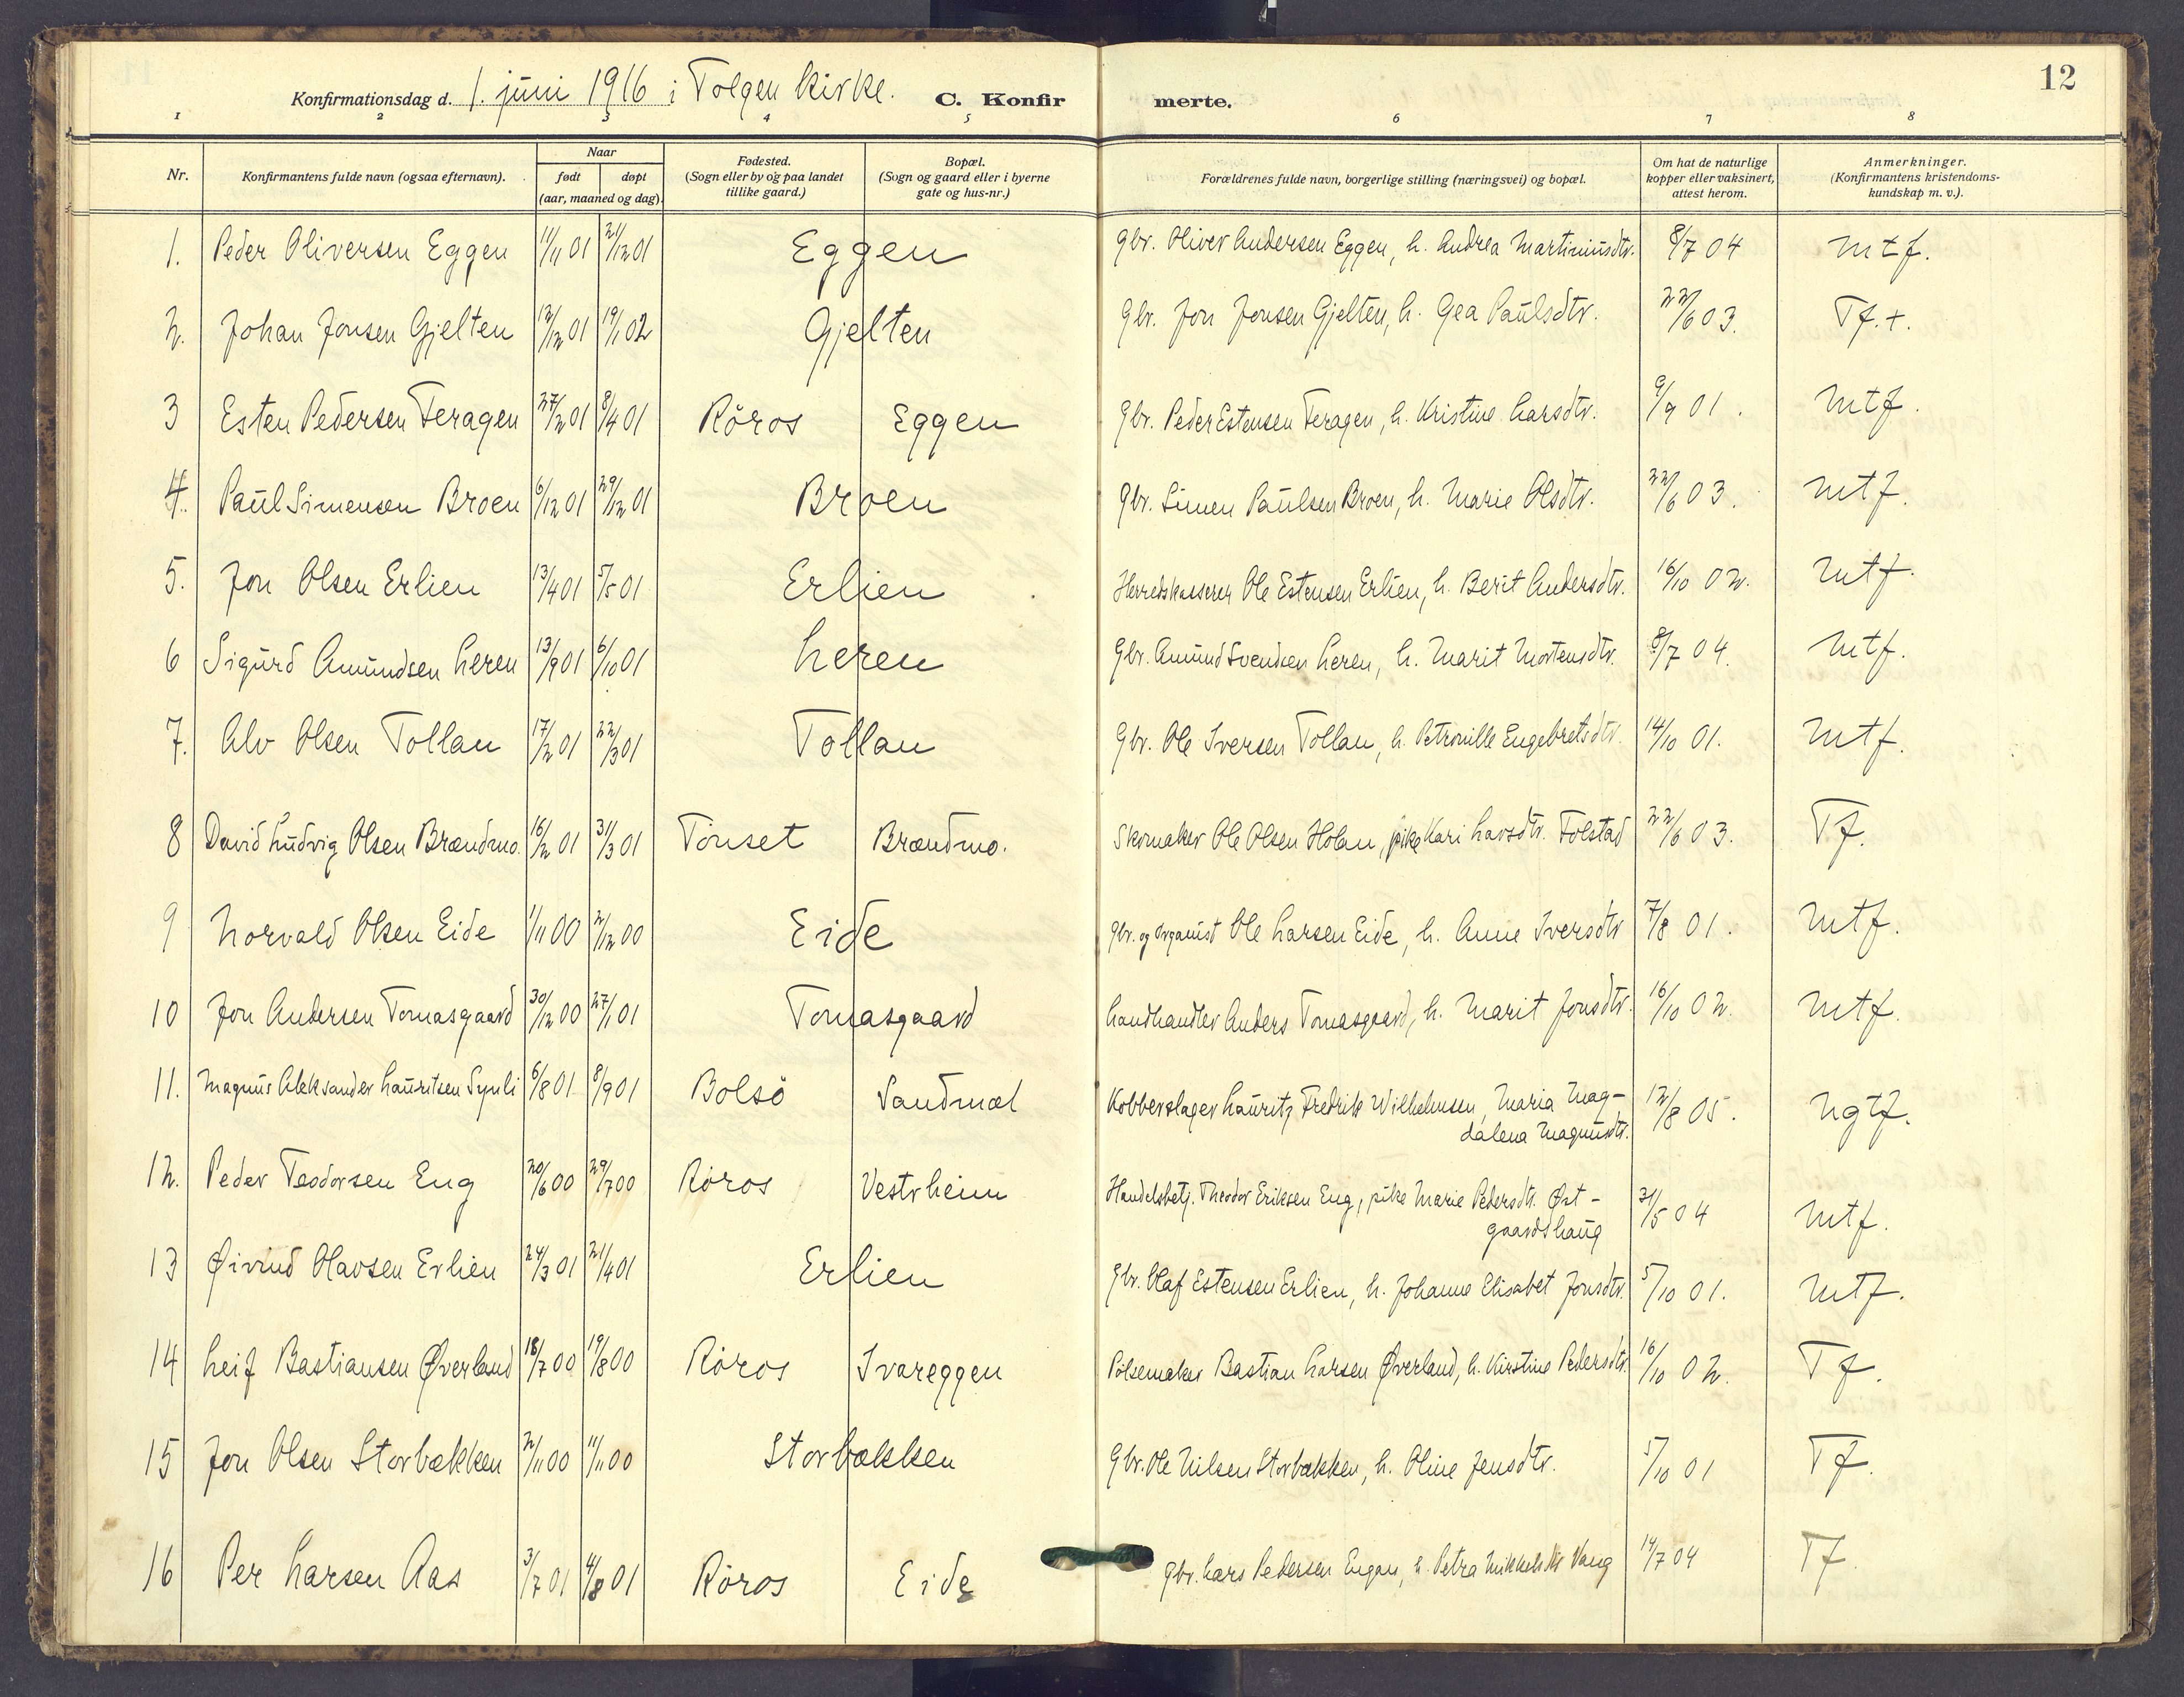 12
Konfirmationsdag d. 1. juni 1916 i Tolgen kirke. C. Konfir merte.
1 2 3 4 5 6 7 8
Nr. Konfirmantens fulde navn (ogsaa efternavn). Naar født døpt (aar, maaned og dag). Fødested. (Sogn eller by og paa landet tillike gaard.) Bopæl. (Sogn og gaard eller i byerne gate og hus-nr.) Forældrenes fulde navn, borgerlige stilling (næringsvei) og bopæl. Om hat de naturlige kopper eller vaksinert, attest herom. Anmerkninger. (Konfirmantens kristendoms-kundskap m. v.).
1. Peder Oliversen Eggen 11/11 01 21/12 01 Eggen Gbr. Oliver Andersen Eggen, h. Andrea Martinusdtr. 8/7 04 Mtf.
2. Johan Jonsen Gjelten 12/12 01 19/1 02 Gjelten Gbr. Jon Jonsen Gjelten, h. Gea Paulsdtr. 22/6 03. Tf.+.
3 Esten Pedersen Feragen 27/2 01 8/4 01 Röros Eggen Gbr. Peder Estensen Feragen, h. Kristine Larsdtr. 9/9 01. Mtf.
4. Paul Simensen Broen 6/12 01 29/12 01 Broen Gbr. Simen Paulsen Broen, h. Marie Olsdtr. 22/6 03. Mtf.
5. Jon Olsen Erlien 13/4 01 5/5 01 Erlien Herredskasserer Ole Estensen Erlien, h. Berit Andersdtr. 16/10 02. Mtf.
6 Sigurd Amundsen Leren 13/9 01 6/10 01 Leren Gbr. Amund Svendsen Leren, h. Marit Mortensdtr. 8/7 04. Mtf.
7. Alv Olsen Tollan 17/2 01 22/3 01 Tollan Gbr. Ole Iversen Tollan, h. Petronille Engebretsdtr. 14/10 01. Mtf.
8 David Ludvig Olsen Brændmo. 16/2 01 31/3 01 Tönset Brændmo. Skomaker Ole Olsen Holan, pike Kari Larsdtr. Tolstad 22/6 03. Tf.
9 Norvald Olsen Eide 1/11 00 2/12 00 Eide Gbr. og organist Ole Larsen Eide, h. Anne Iversdtr 7/8 01. Mtf.
10 Jon Andersen Tomasgaard 30/12 00 27/1 01 Tomasgaard Landhandler Anders Tomasgaard, h. Marit Jonsdtr. 16/10 02. Mtf.
11. Magnus Aleksander Lauritsen 6/8 01 8/9 01 Bolsö Sandmæl Kobberslager Lauritz Fredrik Wilhelmsen, Maria Mag-
dalena Magnusdtr. 12/8 05. Ngtf.
12. Peder Teodorsen Eng 20/6 00 29/7 00 Röros Vestrheim Handelsbetj. Theodor Eriksen Eng, pike Marie Pedersdtr. Øst-
gaardshaug 31/5 04 Mtf.
13 Øivind Olavsen Erlien 24/3 01 21/4 01 Erlien Gbr. Olaf Estensen Erlien, h. Johanne Elisabet Jonsdtr. 5/10 01. Mtf.
14 Leif Bastiansen Øverland 18/7 00 19/8 00 Röros Ivareggen Pölsemaker Bastian Larsen Øverland, h. Kirstine Pedersdtr. 16/10 02. Tf.
15 Jon Olsen Storbækken 2/11 00 11/11 00 Storbækken Gbr. Ole Nilsen Storbækken, h. Oline Jensdtr. 5/10 01 Tf.
16 Per Larsen Aas 3/7 01 4/8 01 Röros Eide Gbr. Lars Pedersen Engan, h. Petra Mikkelsdtr Vang 14/7 04 Tf.